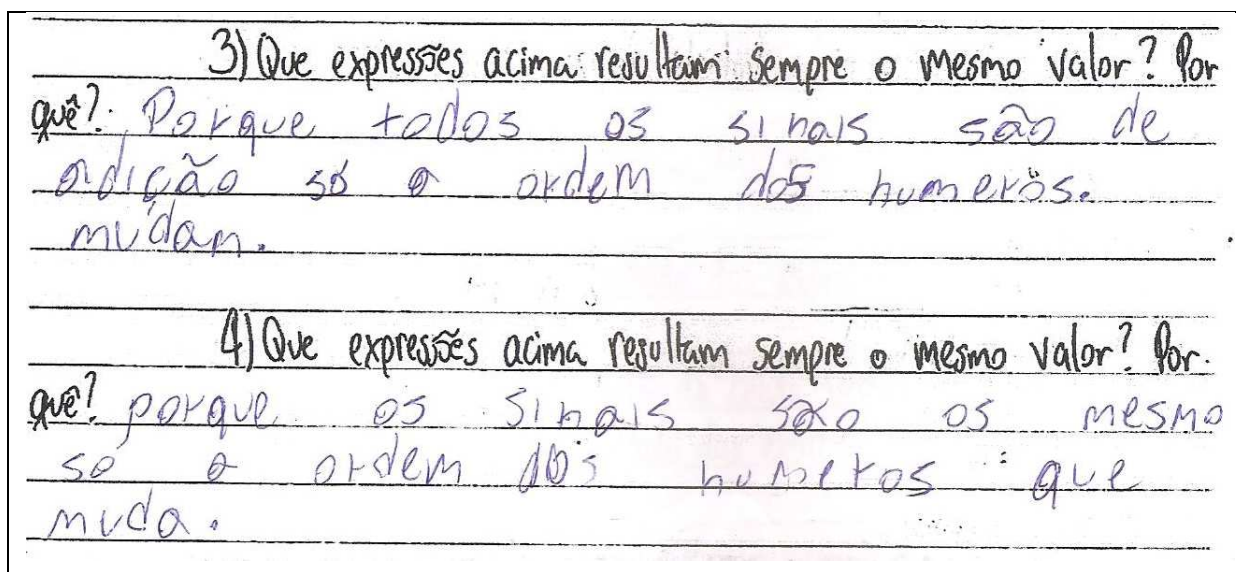 3) Que expressões acima resultam sempre o mesmo valor? Por
quê? Porque todos os sinais são de
adição só a ordem dos numeros.
mudam.
4) Que expressões acima resultam sempre o mesmo valor? Por.
quê? porque os sinais são os mesmo
so a ordem dos numeros que
muda.